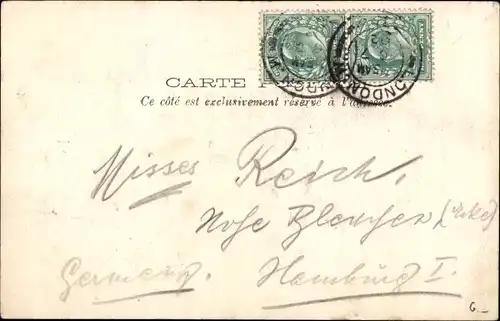 CARTE P
Ce côté est exclusivement réservé à l'adresse.
LONDON
Misses Reich,
Hohe Bleichen (Ecke)
Germany. Hamburg I.
G._